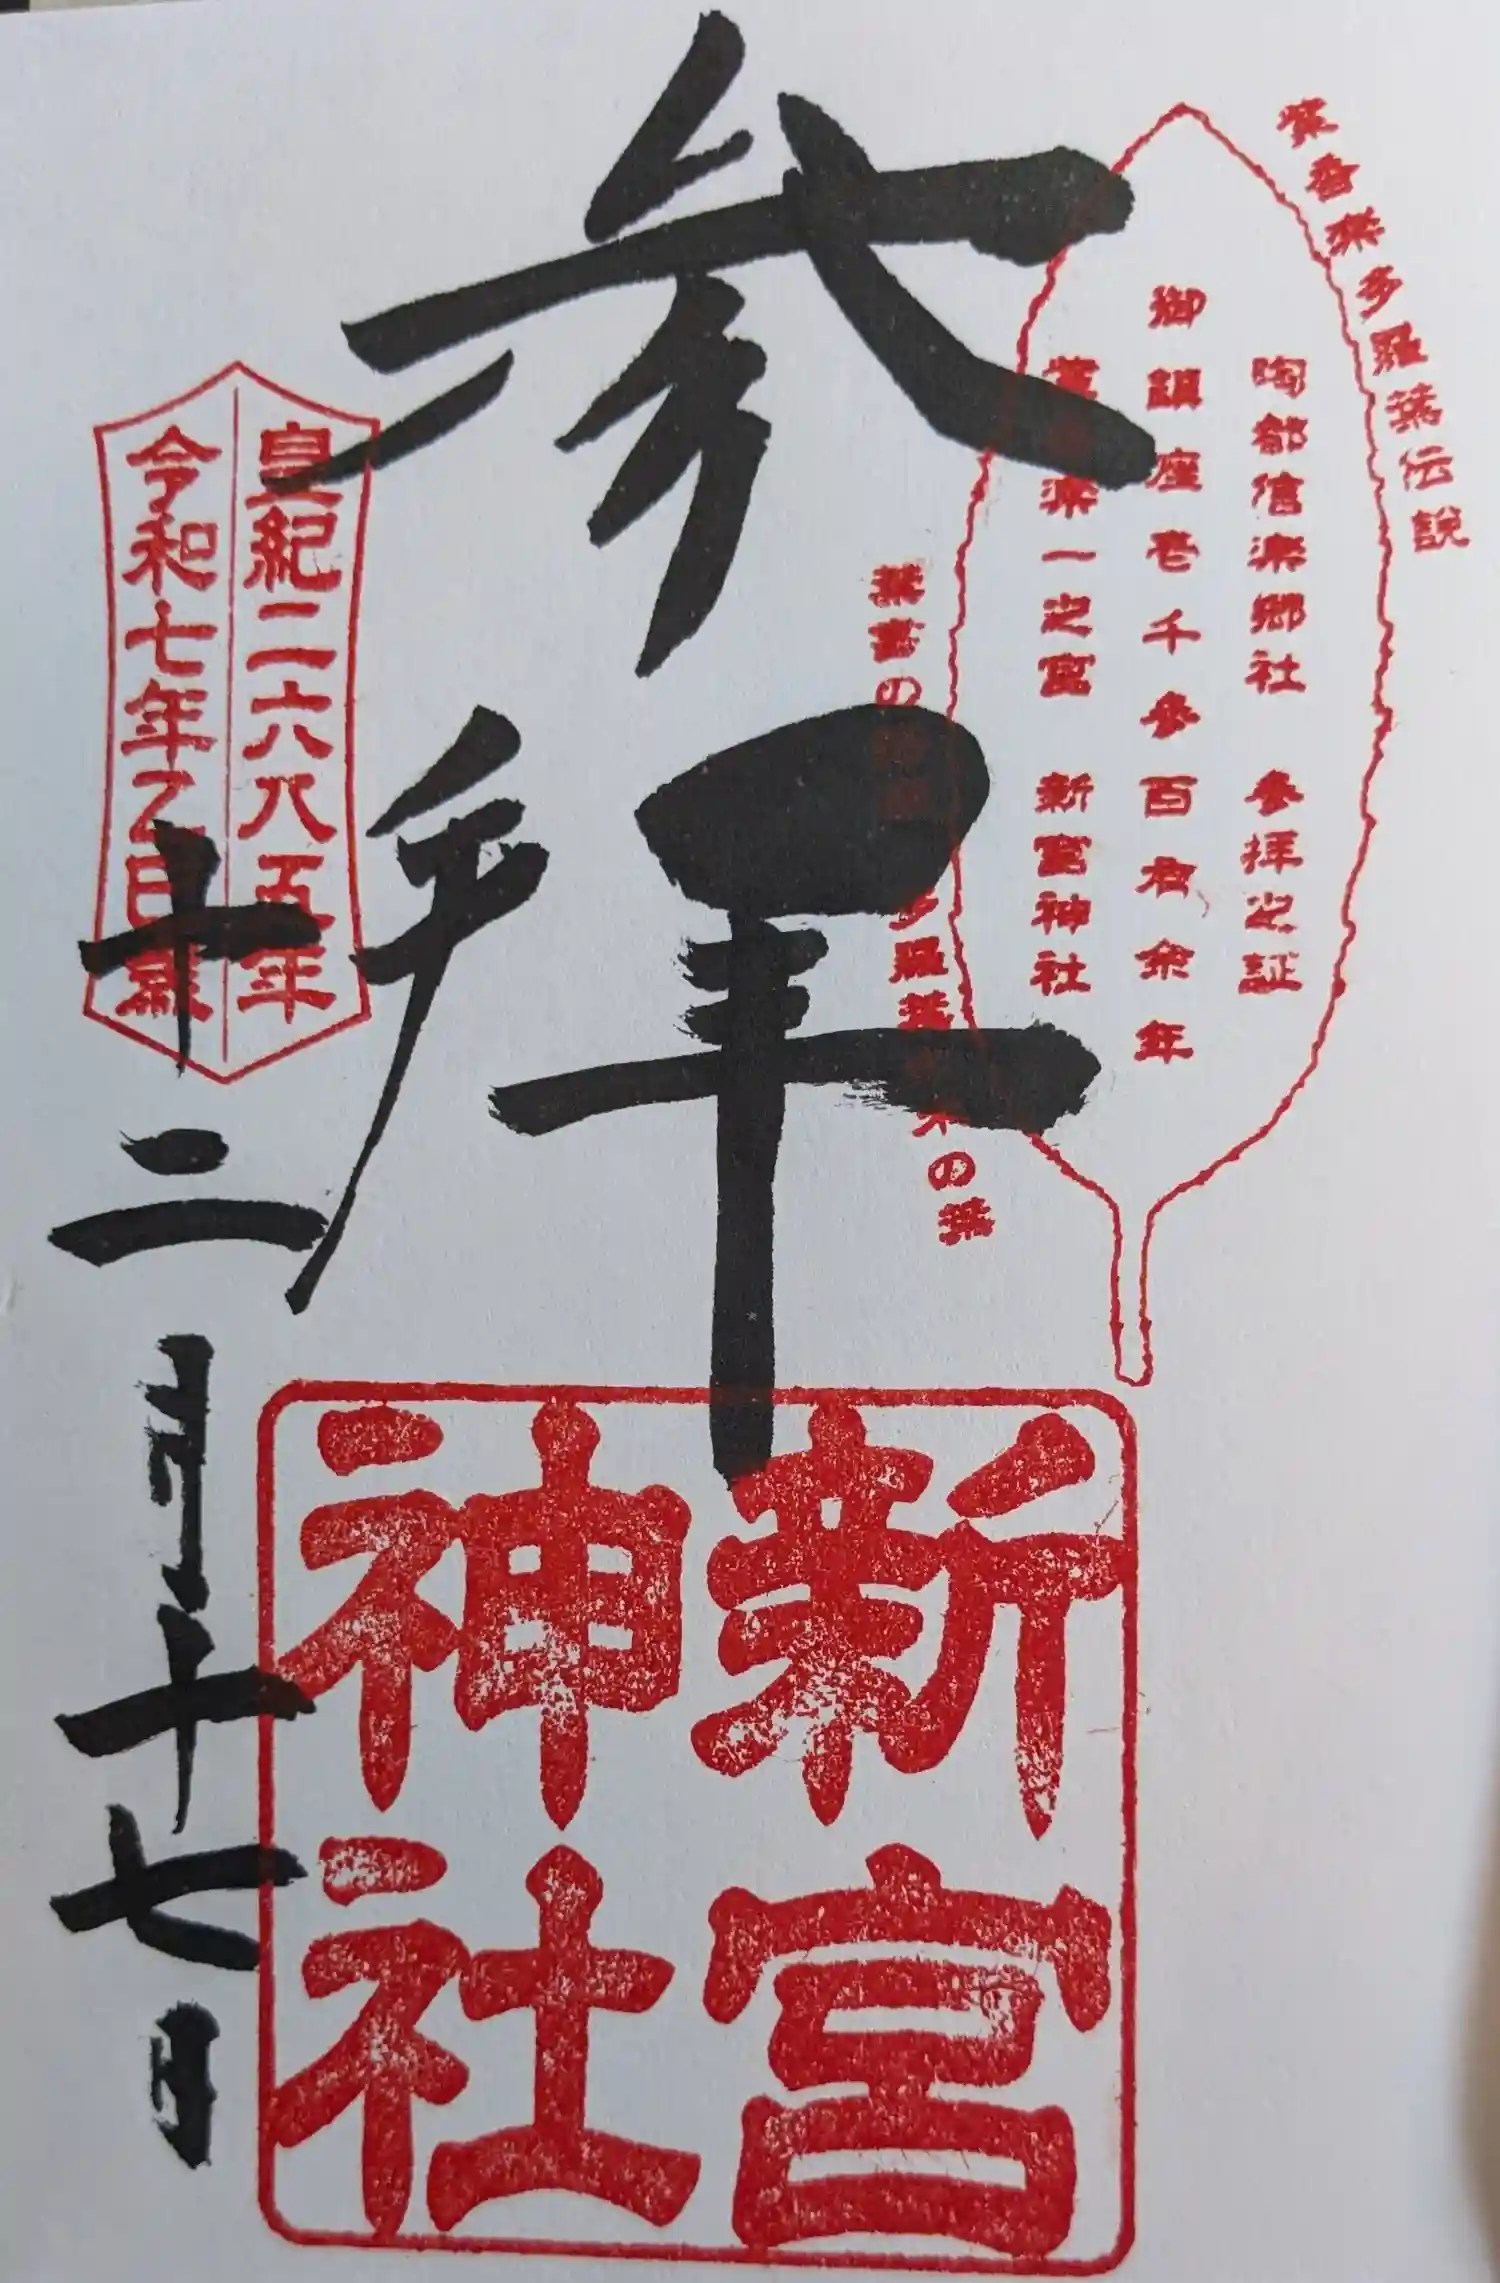 紫香楽多羅葉伝説
陶都信楽郷社 参拝之証
御鎮座壱千参百有余年
紫香楽一之宮 新宮神社
葉書の 多羅葉 木の葉
参拝
新宮
神社
皇紀二六八五年
令和七年乙巳歳
十二月十七日